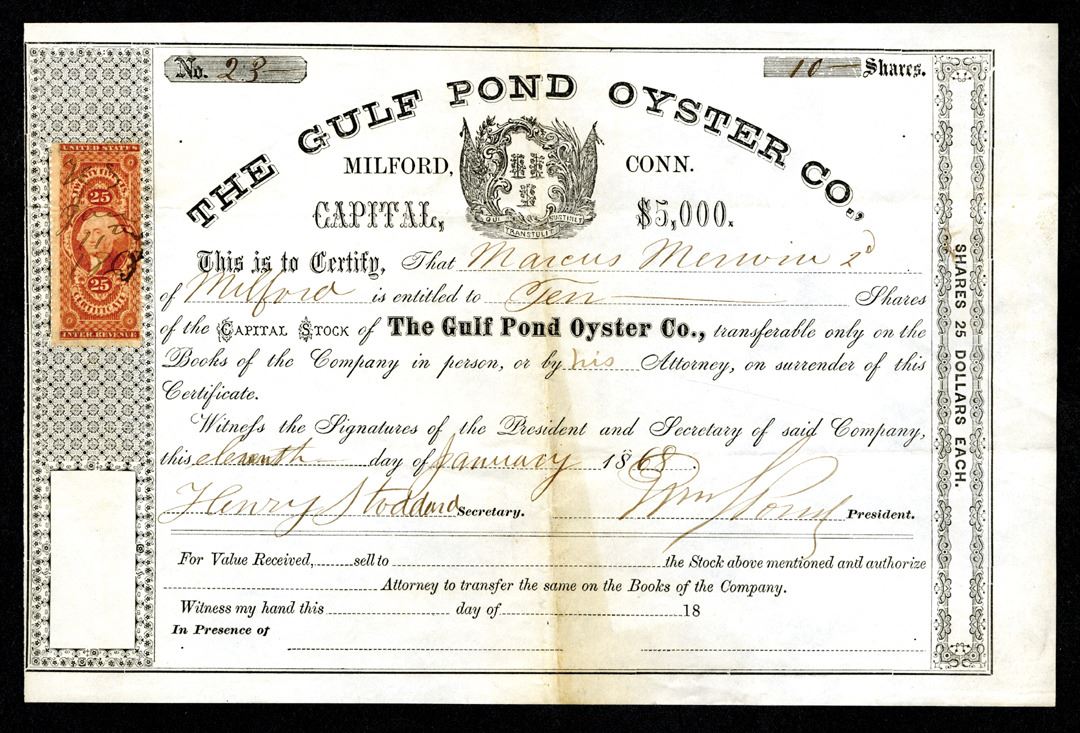 No. 23
10 Shares.
THE GULF POND OYSTER CO.,
MILFORD, CONN.
CAPITAL, $5,000.
QUI TRANSTULIT SUSTINET
UNITED STATES
25
25
CERTIFICATE
INTER. REVENUE
This is to Certify, That Marcus Merwin 2d
of Milford is entitled to Ten Shares
of the CAPITAL STOCK of The Gulf Pond Oyster Co., transferable only on the
Books of the Company in person, or by his Attorney, on surrender of this
Certificate.
Witness the Signatures of the President and Secretary of said Company,
this eleventh day of January 1868.
Henry Stoddard Secretary. President.
For Value Received, sell to the Stock above mentioned and authorize
Attorney to transfer the same on the Books of the Company.
Witness my hand this day of 18
In Presence of
SHARES 25 DOLLARS EACH.